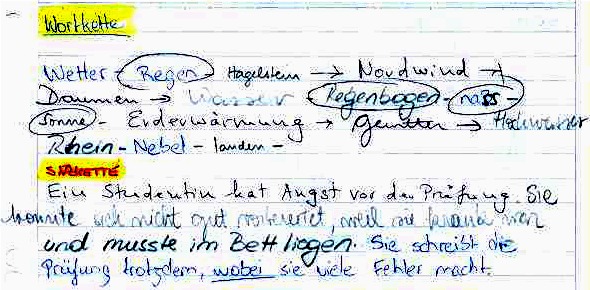 Wortkette
Wetter - Regen - Hagelstein → Nordwind →
Daumen → Wasser - Regenbogen - nass -
Sonne - Erderwärmung → Gewitter → Hochwasser
Rhein - Nebel - landen -
SATZKETTE
Ein Studentin hat Angst vor der Prüfung. Sie
konnte sich nicht gut vorbereitet, weil sie krank war
und musste im Bett liegen. Sie schreibt die
Prüfung trotzdem, wobei sie viele Fehler macht.